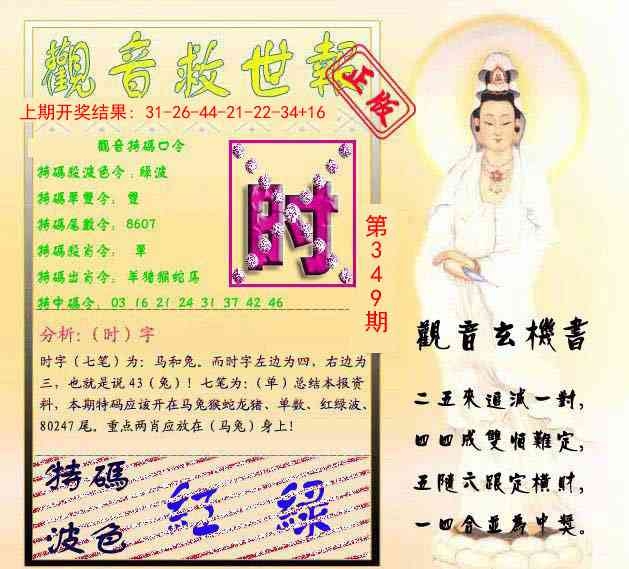 觀音救世報
正版
上期开奖结果：31-26-44-21-22-34+16
觀音特碼口令
特碼殺波色令：綠波
特碼單雙令： 雙
特碼尾數令： 8607
特碼殺肖令： 單
特碼出肖令： 羊猪猴蛇马
特中碼令： 03 16 21 24 31 37 42 46
时
第349期
分析：（时）字
时字（七笔）为：马和兔。而时字左边为四，右边为
三，也就是说 43（兔）！七笔为：（单）总结本报资
料，本期特码应该开在马兔猴蛇龙猪、单数、红绿波、
80247 尾。重点两肖应放在（马兔）身上！
特碼
波色
红 綠
觀音玄機書
二五來追減一對，
四四成雙恒難定，
五隨六跟定橫財，
一四合並爲中獎。